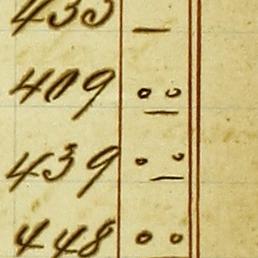 435 —
409 o o —
439 o o —
448 o o —